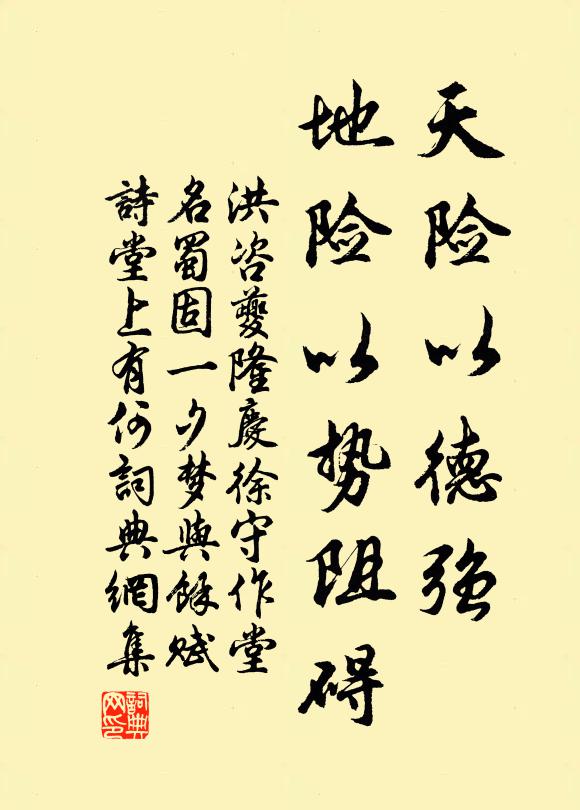 天险以德强
地险以势阻碍
洪咨夔隆慶徐守作堂
名蜀固一夕梦與餘赋
詩堂上有何詞典網集
詞典
网印